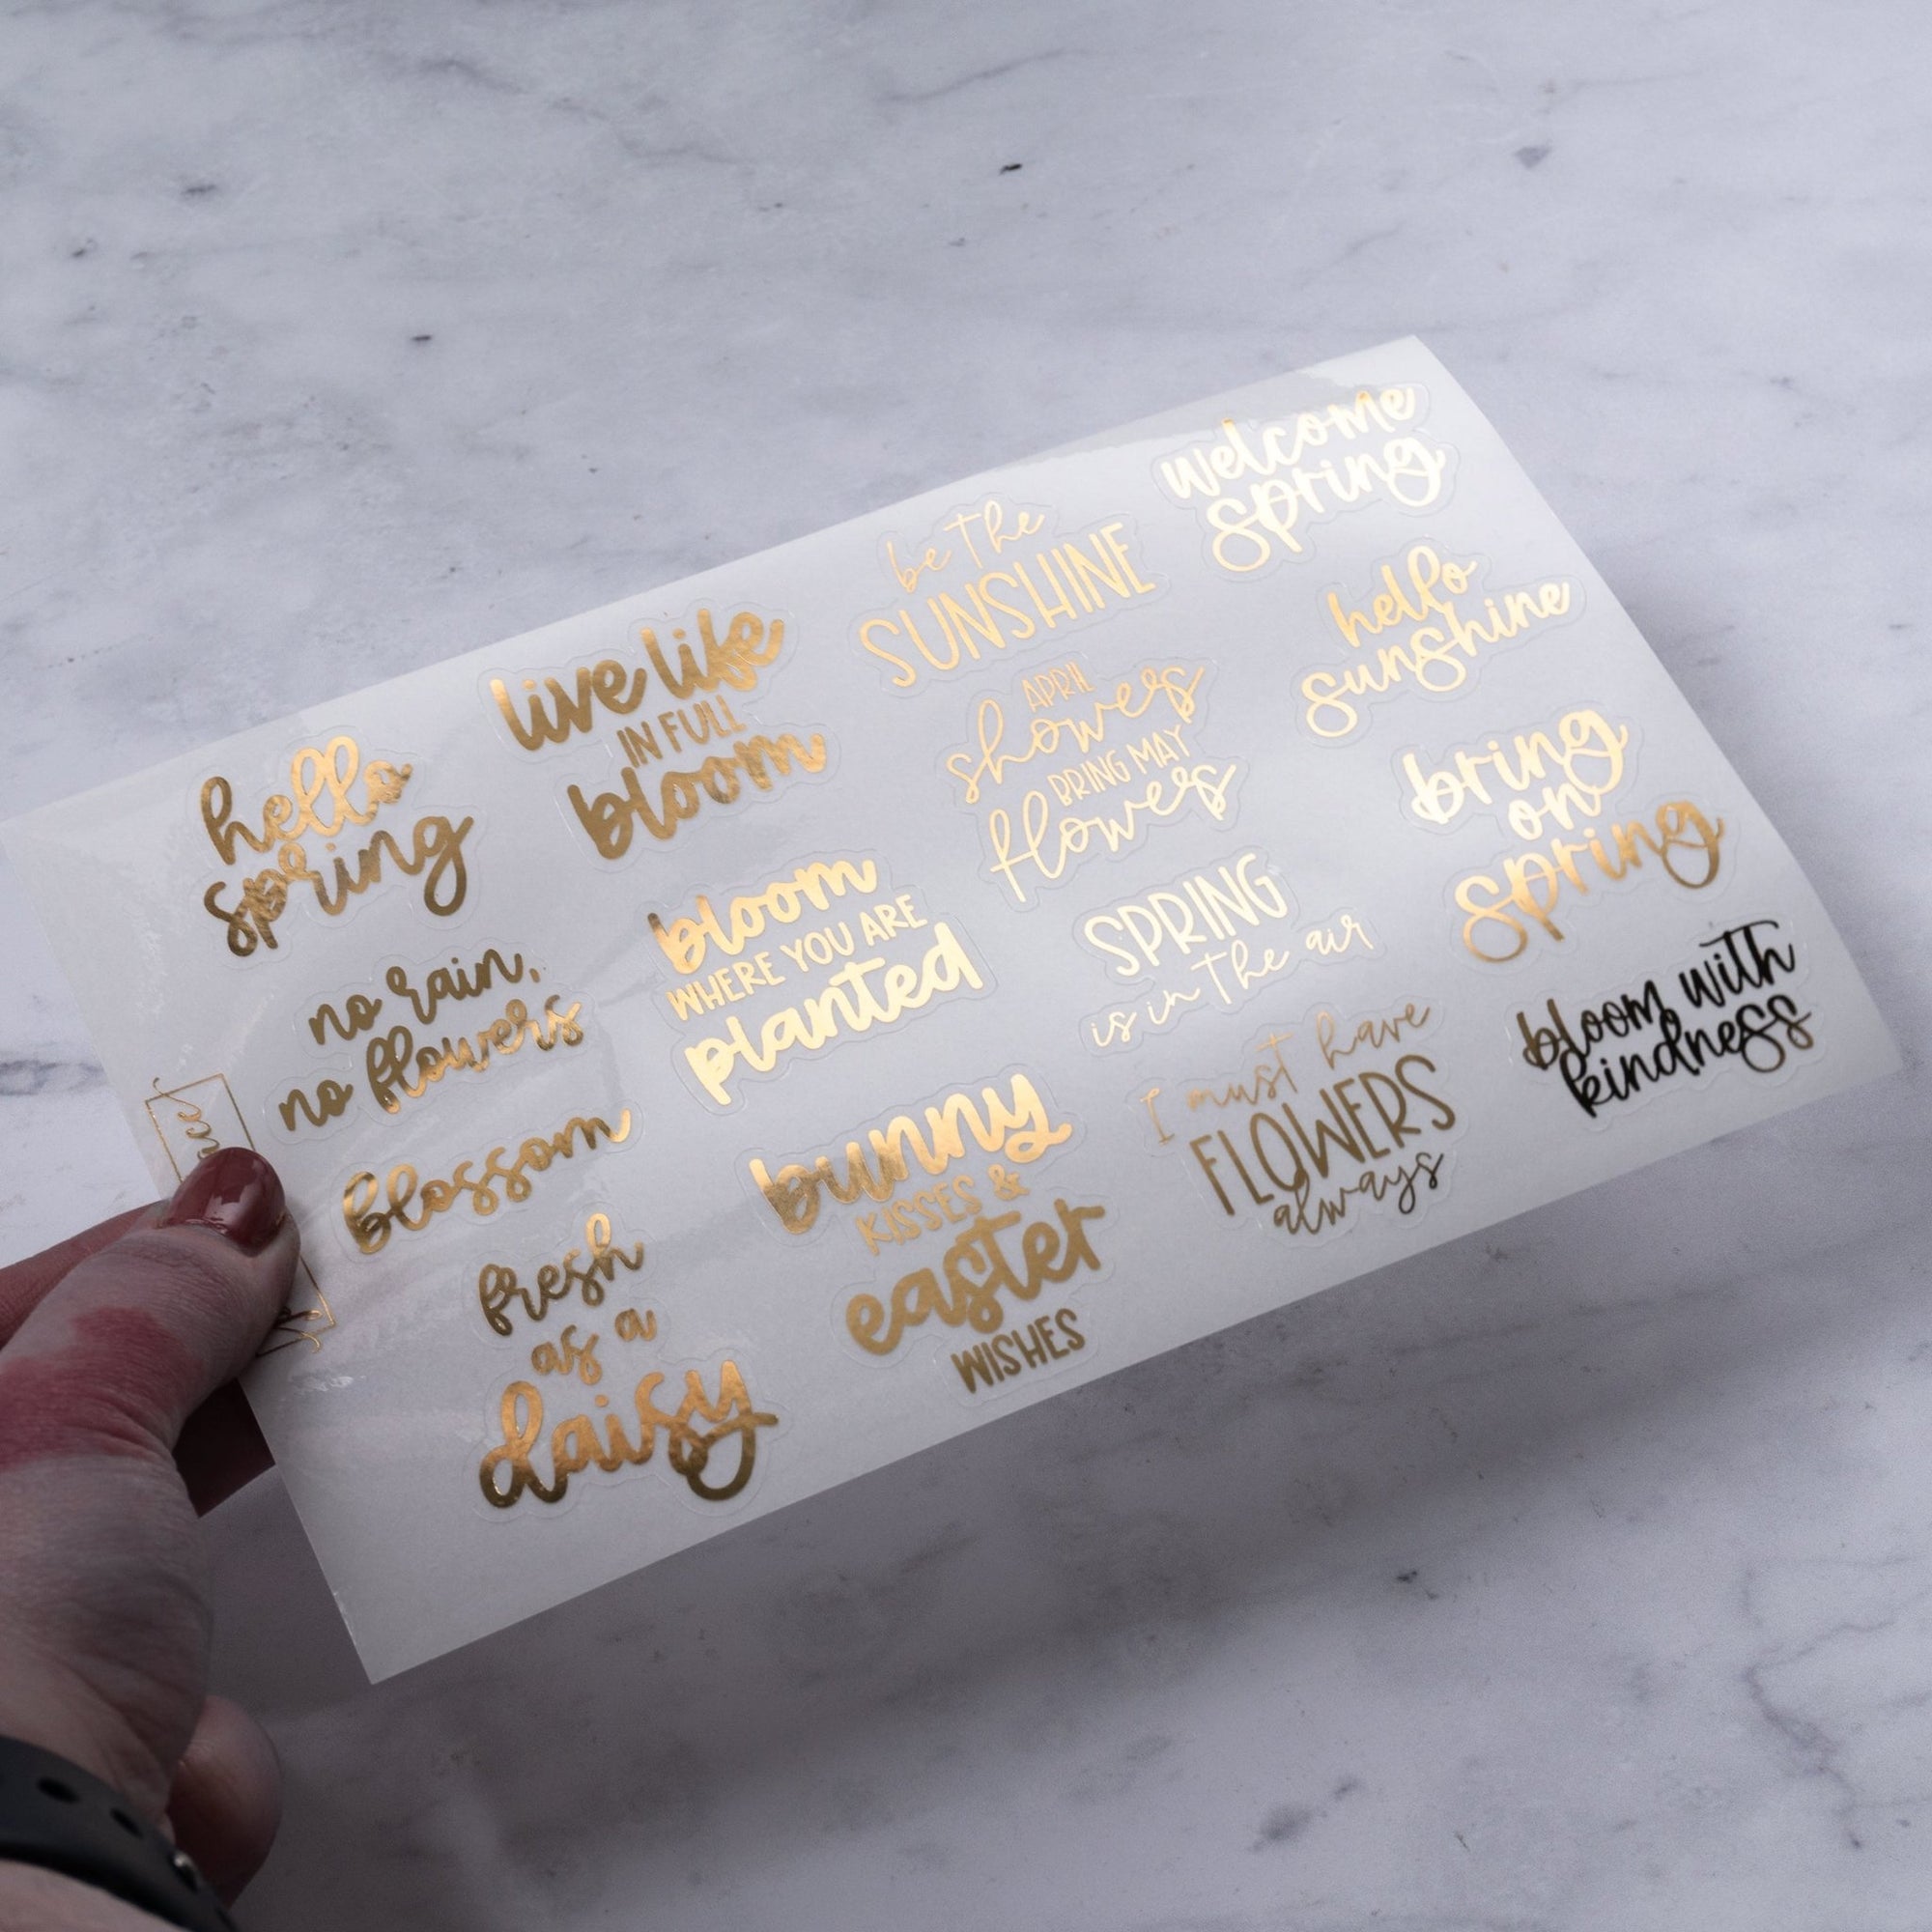 hello
spring
no rain,
no flowers
blossom
fresh
as a
daisy
live life
IN FULL
bloom
bloom
WHERE YOU ARE
planted
bunny
KISSES &
easter
WISHES
be the
SUNSHINE
APRIL
showers
BRING MAY
flowers
SPRING
is in the air
I must have
FLOWERS
always
welcome
spring
hello
sunshine
bring
on
spring
bloom with
kindness